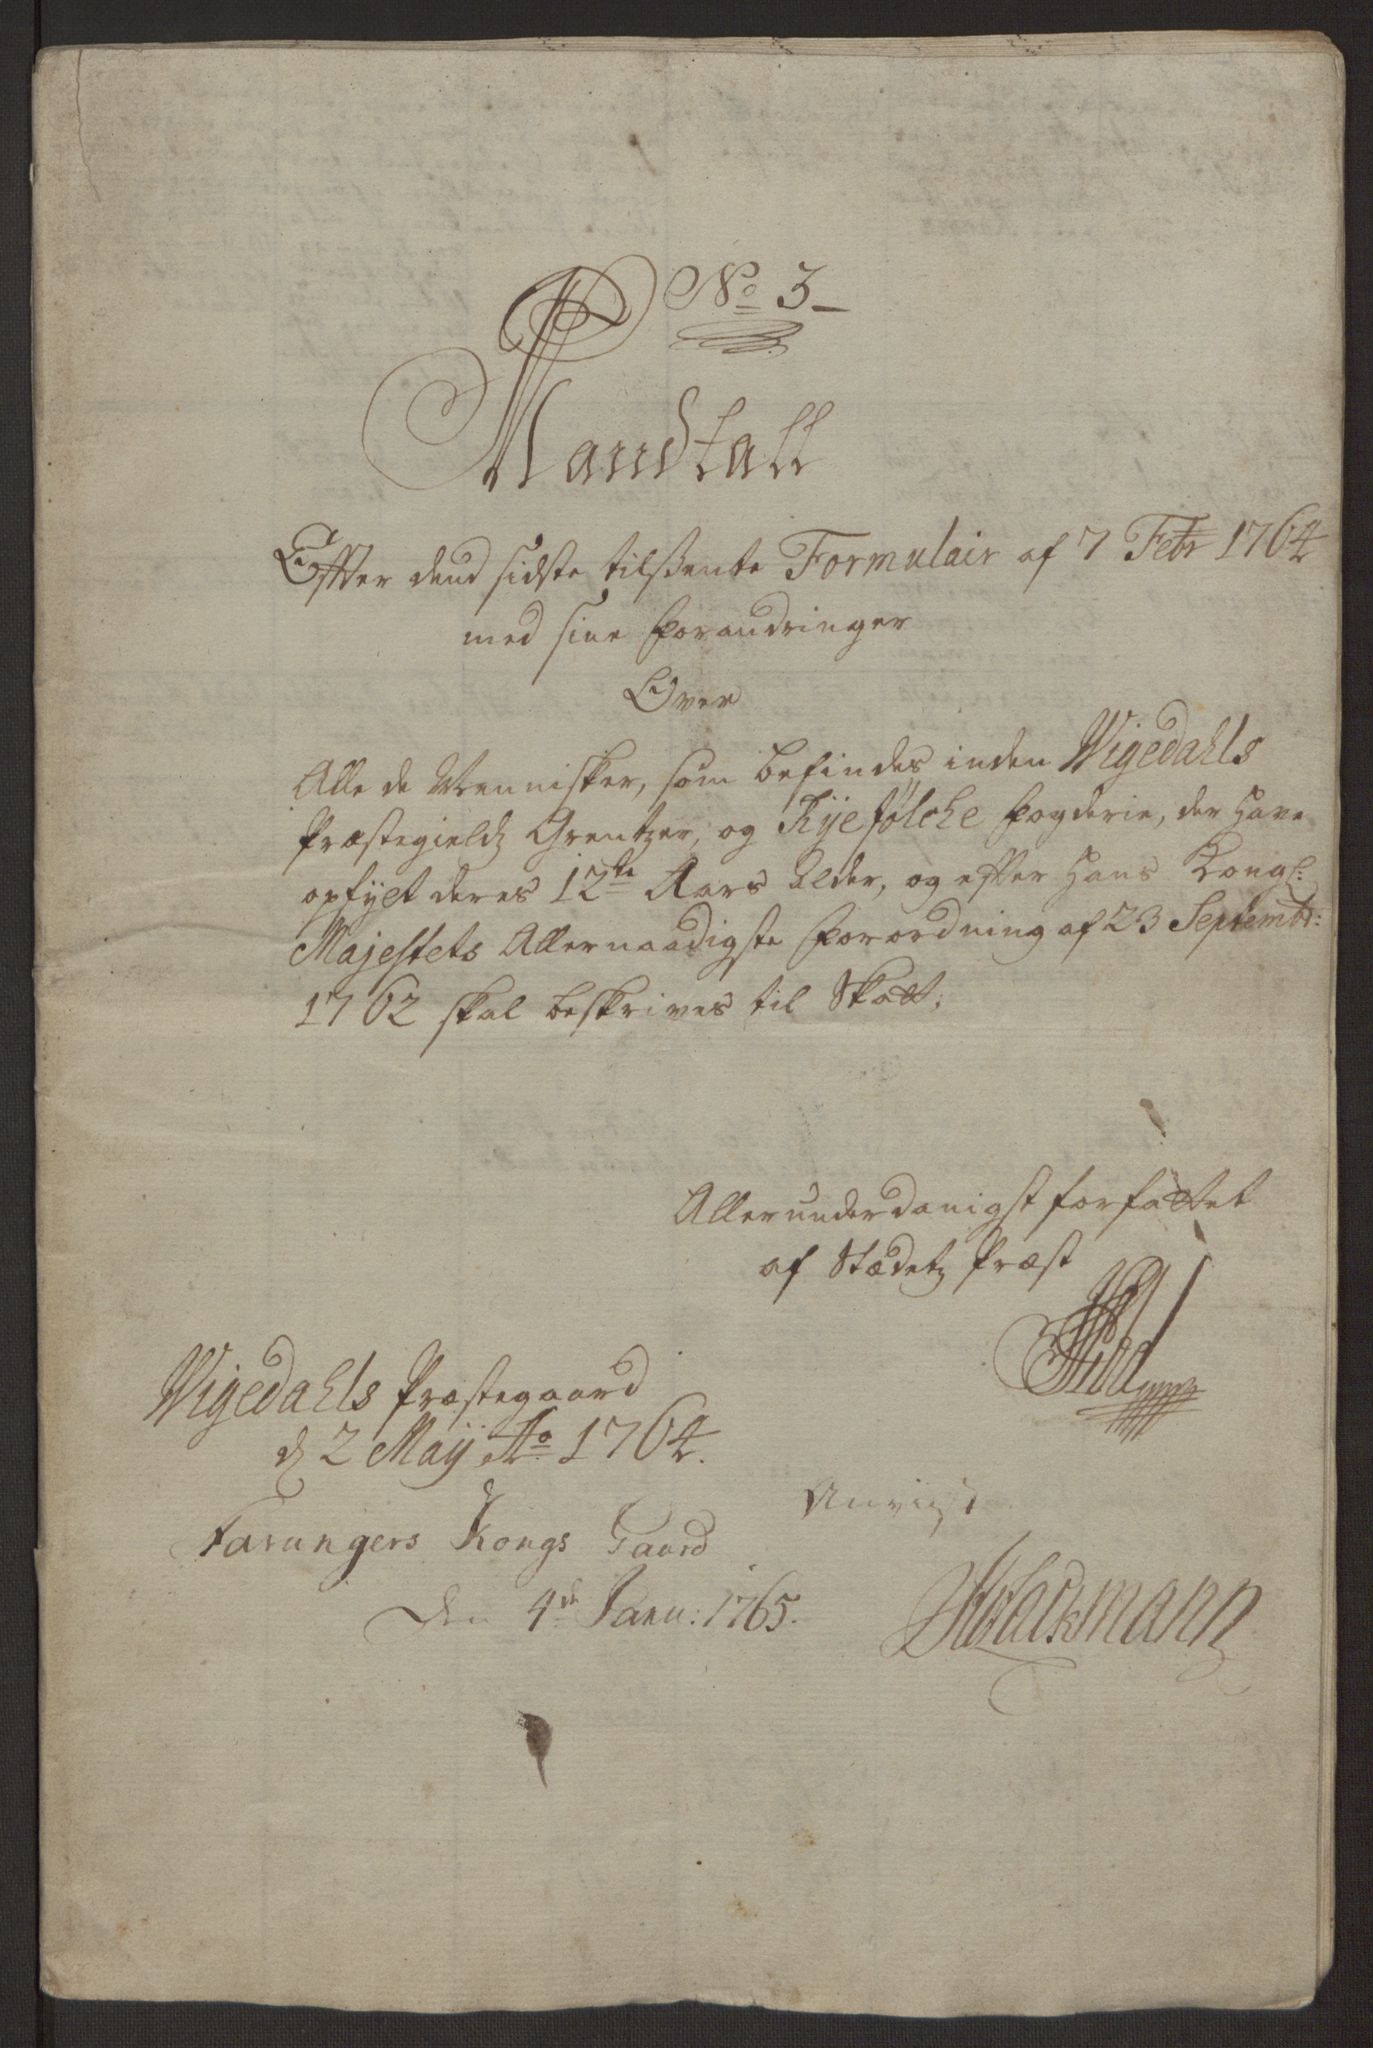 No 3
Mandtall
Efter dend sidste tilsente Formulair af 7 Febr 1764
med sine Forandringer
Over
Alle de Mennisker, som befindes inden Vigedahls
Præstegields Grentzer, og Ryefølcke Fogderie, der Have
opfylt deres 12te Aars Alder, og efter Hans Kongl:
Majestets Allernaadigste Forordning af 23 Septembr:
1762 skal beskrives til Skatt.
Allerunderdanigst forfattet
af Stædetz Præst
Vigedahls Præstegaard
d 2 Maij Ao 1764.
Anviist
Stavangers Kongs Gaard
Den 4de Janu: 1765.